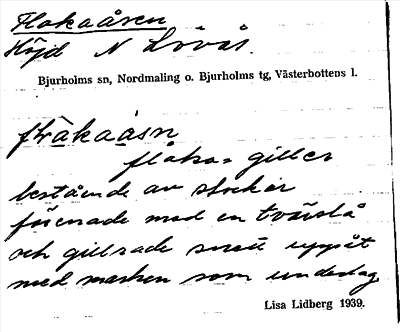 Flakaåsen
Höjd N Lövås.
Bjurholms sn, Nordmaling o. Bjurholms tg, Västerbottens l.
flràkaåsn
flåka = giller
bestående av stockar
förenade med en tvärslå
och gillrade snett uppåt
med marken som underlag
Lisa Lidberg 1939.